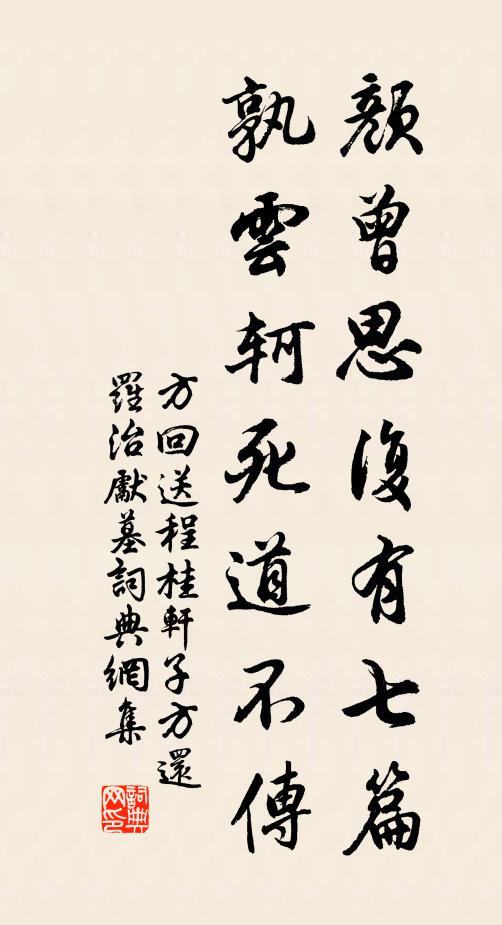 顏曾思復有七篇
孰雲軻死道不傳
方回送程桂軒子方還
羅治獻墓詞典網集
詞典
网印